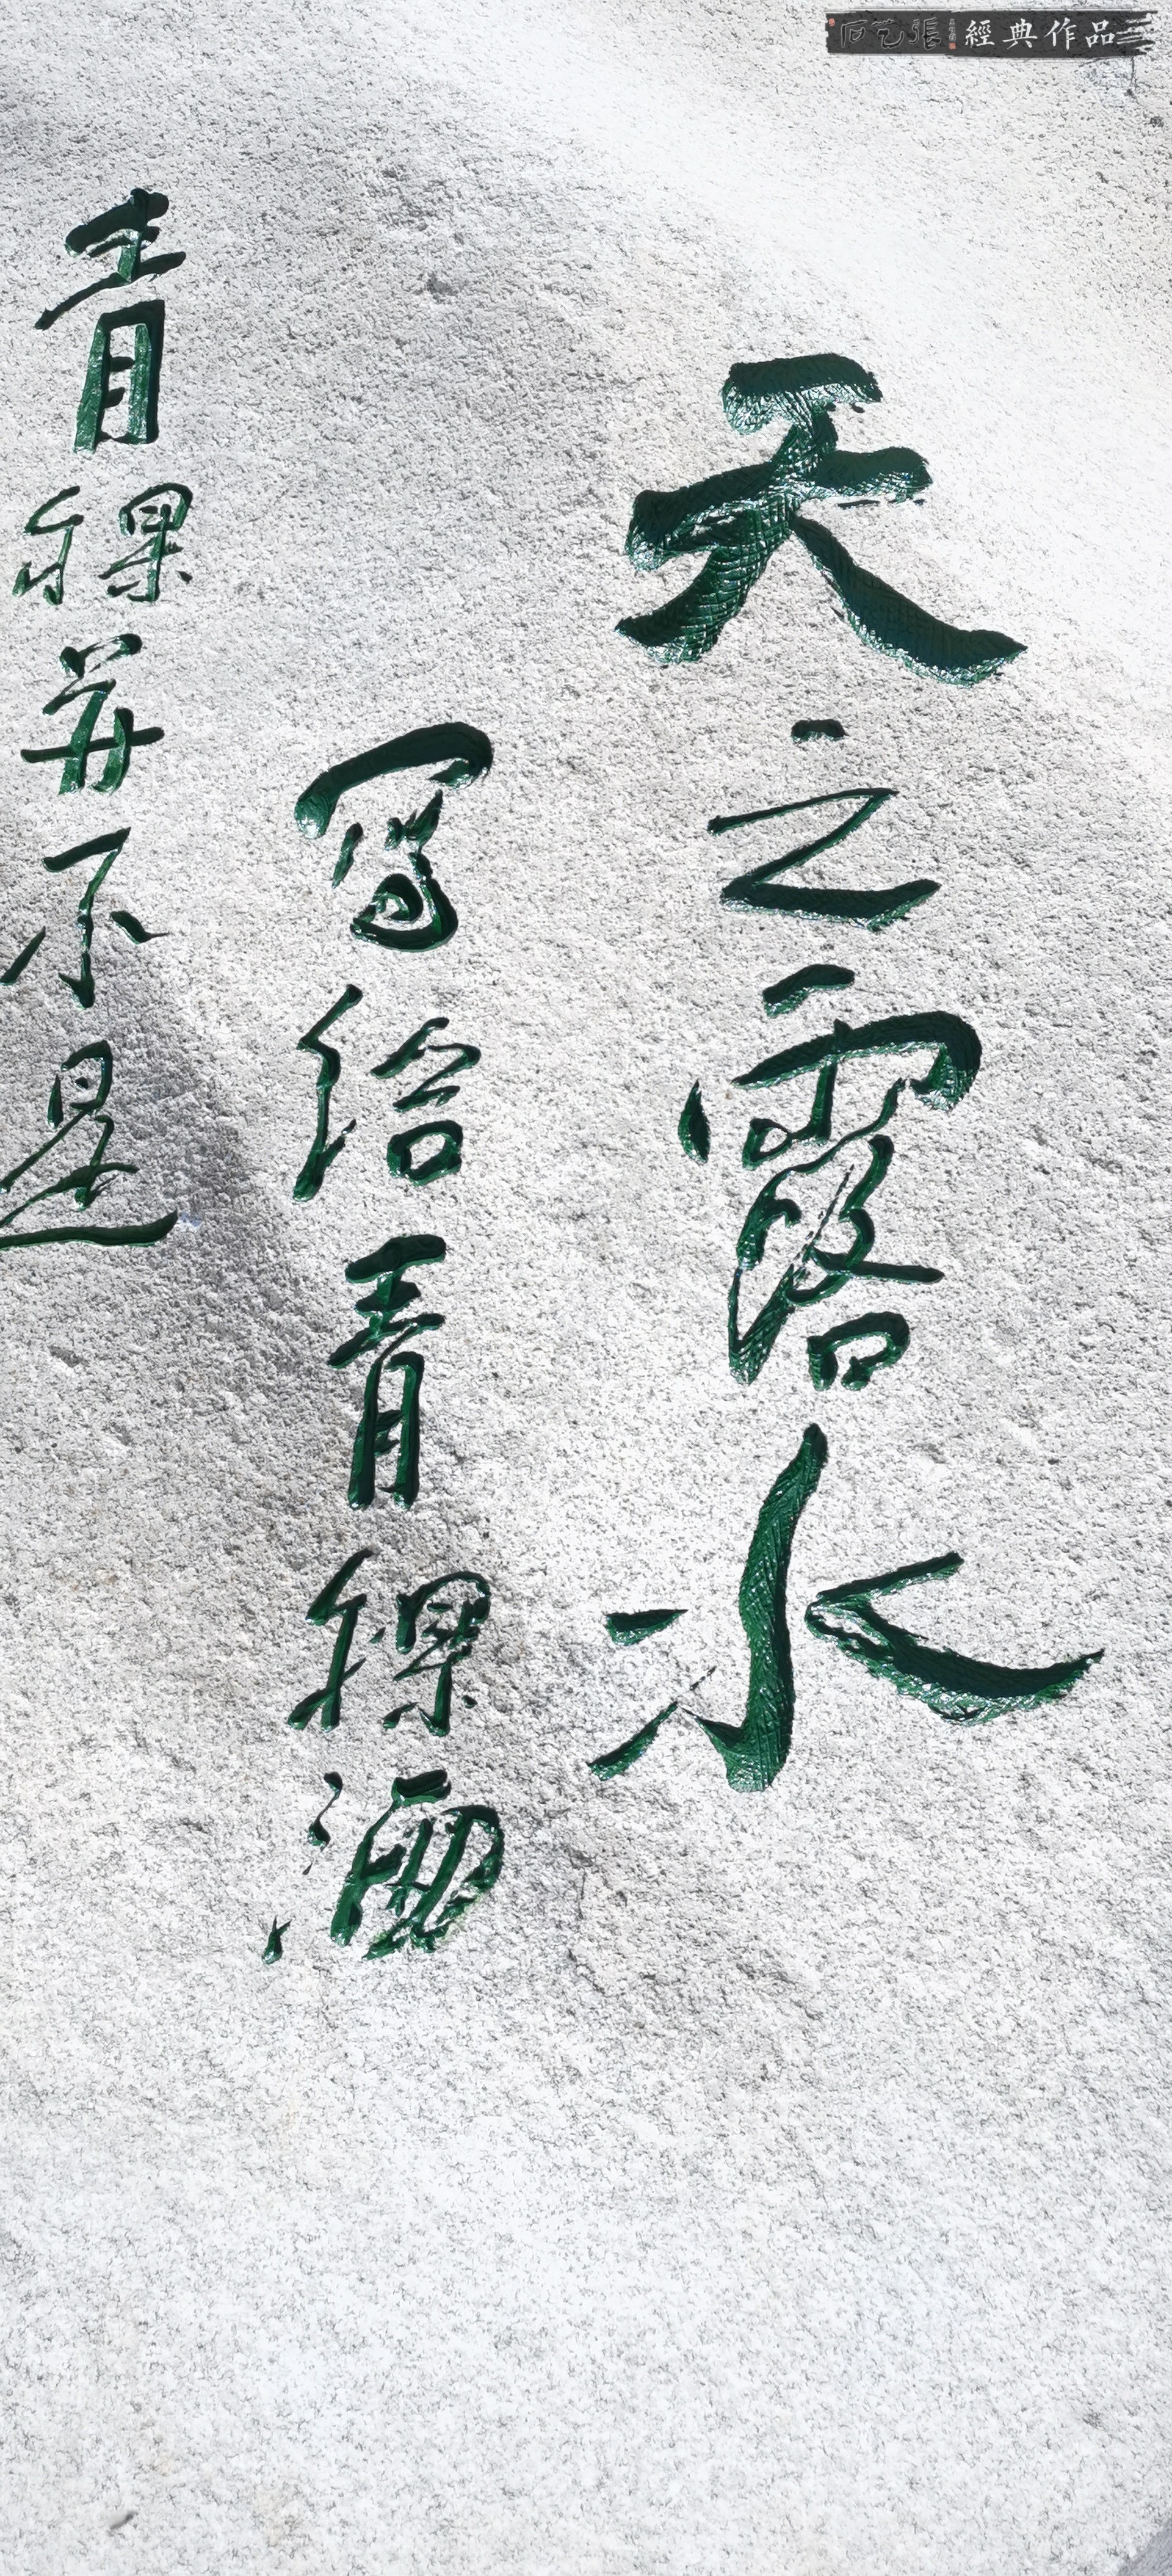 張艺石 經典作品
天之露水
写给青稞酒
青稞并不是